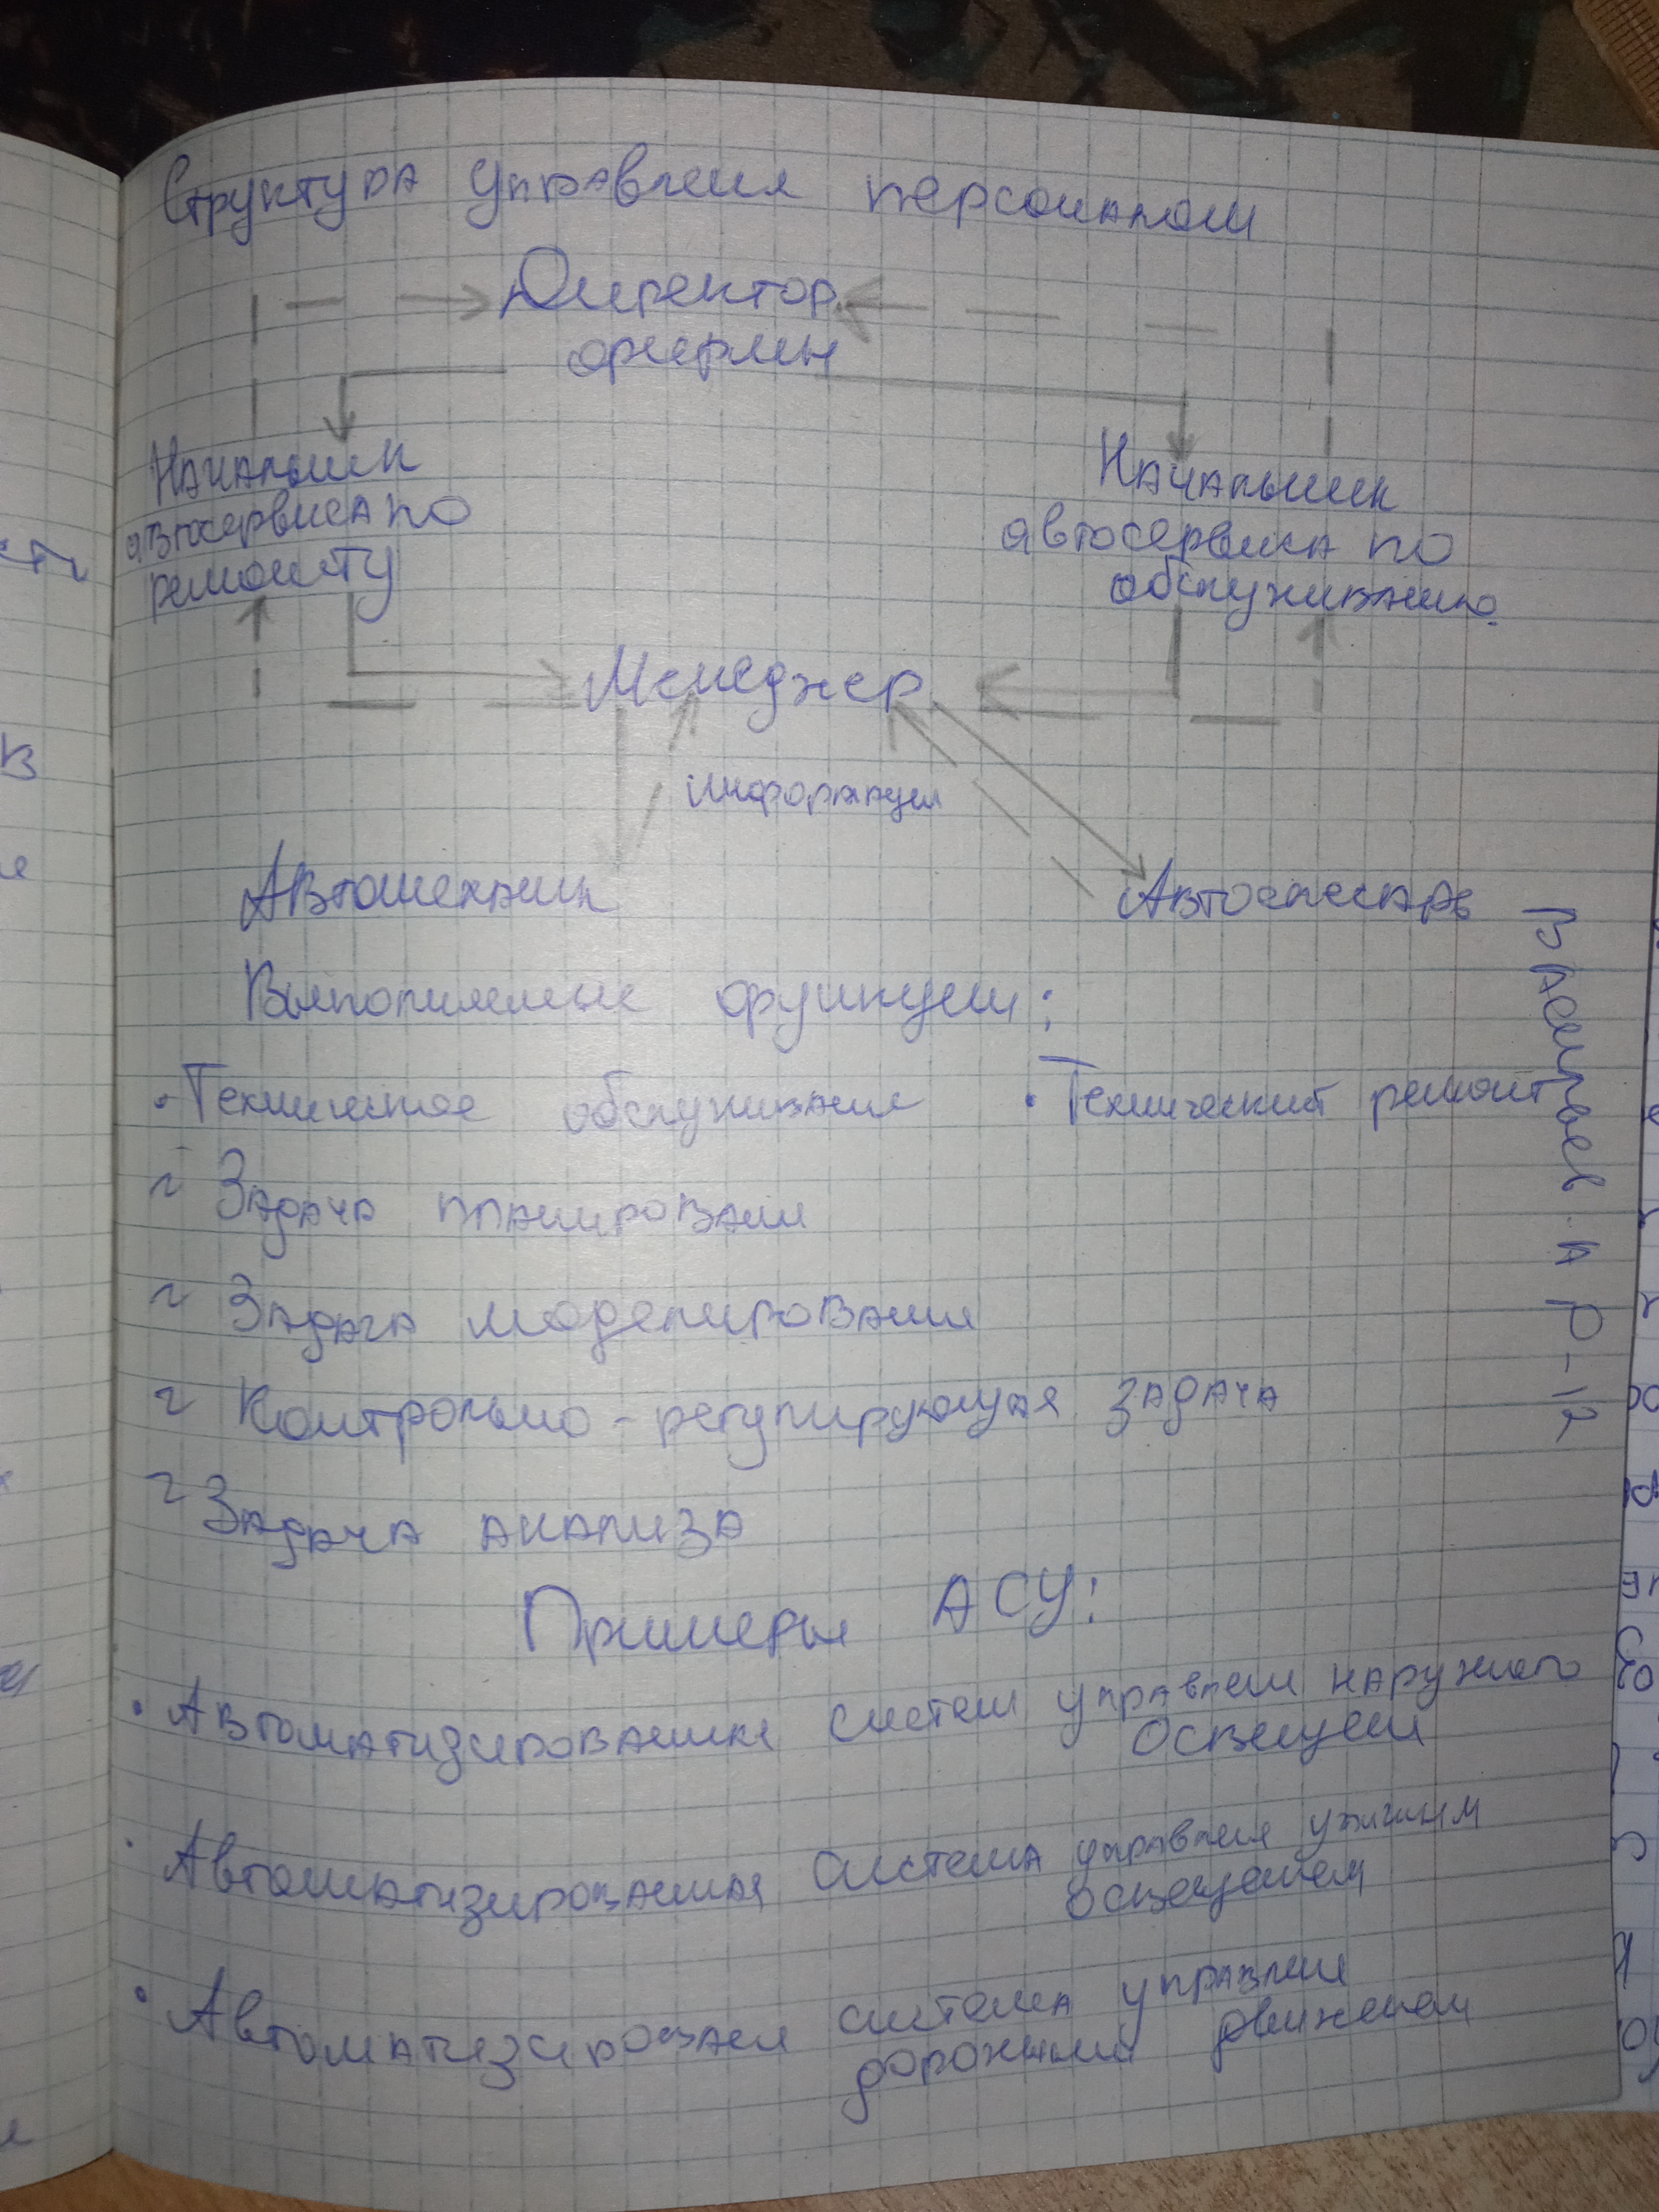 Структура управления персоналом
Директор
фирмы
Начальник
автосервиса по
ремонту
Начальник
автосервиса по
обслуживанию
Менеджер
информация
Автомеханик
Автослесарь
Выполняемые функции:
· Техническое обслуживание
· Технический ремонт
Задача планировани
Задача моделирования
Контрольно-регулирующая задача
Задача анализа
Примеры АСУ:
· Автоматизирования систем управлени наружного
освещени
· Автоматизированная система управления уличным
освещением
· Автоматизировання система управлени
дорожным движением
Васильев А Р-12